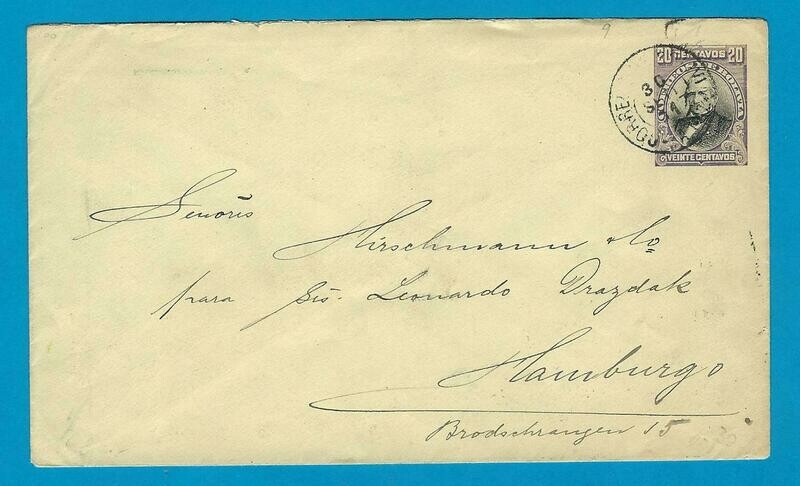 20 CENTAVOS 20
CORREOS DE BOLIVIA
VEINTE CENTAVOS
CORREO
30
Señores
Hirschmann & Co
para Srs. Leonardo Drazdak
Hamburgo
Brodschrangen 15